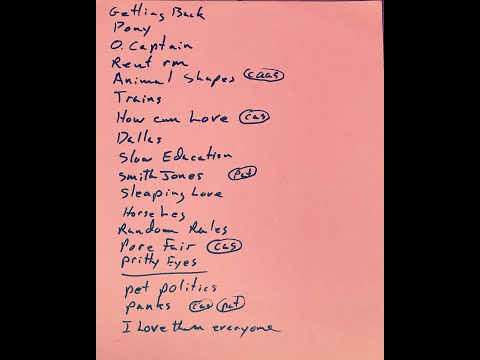 Getting Back
Pony
O. Captain
Rent rm
Animal Shapes caas
Trains
How can Love cas
Dallas
Slow Education
Smith Jones pat
Sleaping Love
Horse Leg
Random Rules
Pore Fair cas
Pritty Eyes
pet politics
panks cas pat
I Love tham everyone